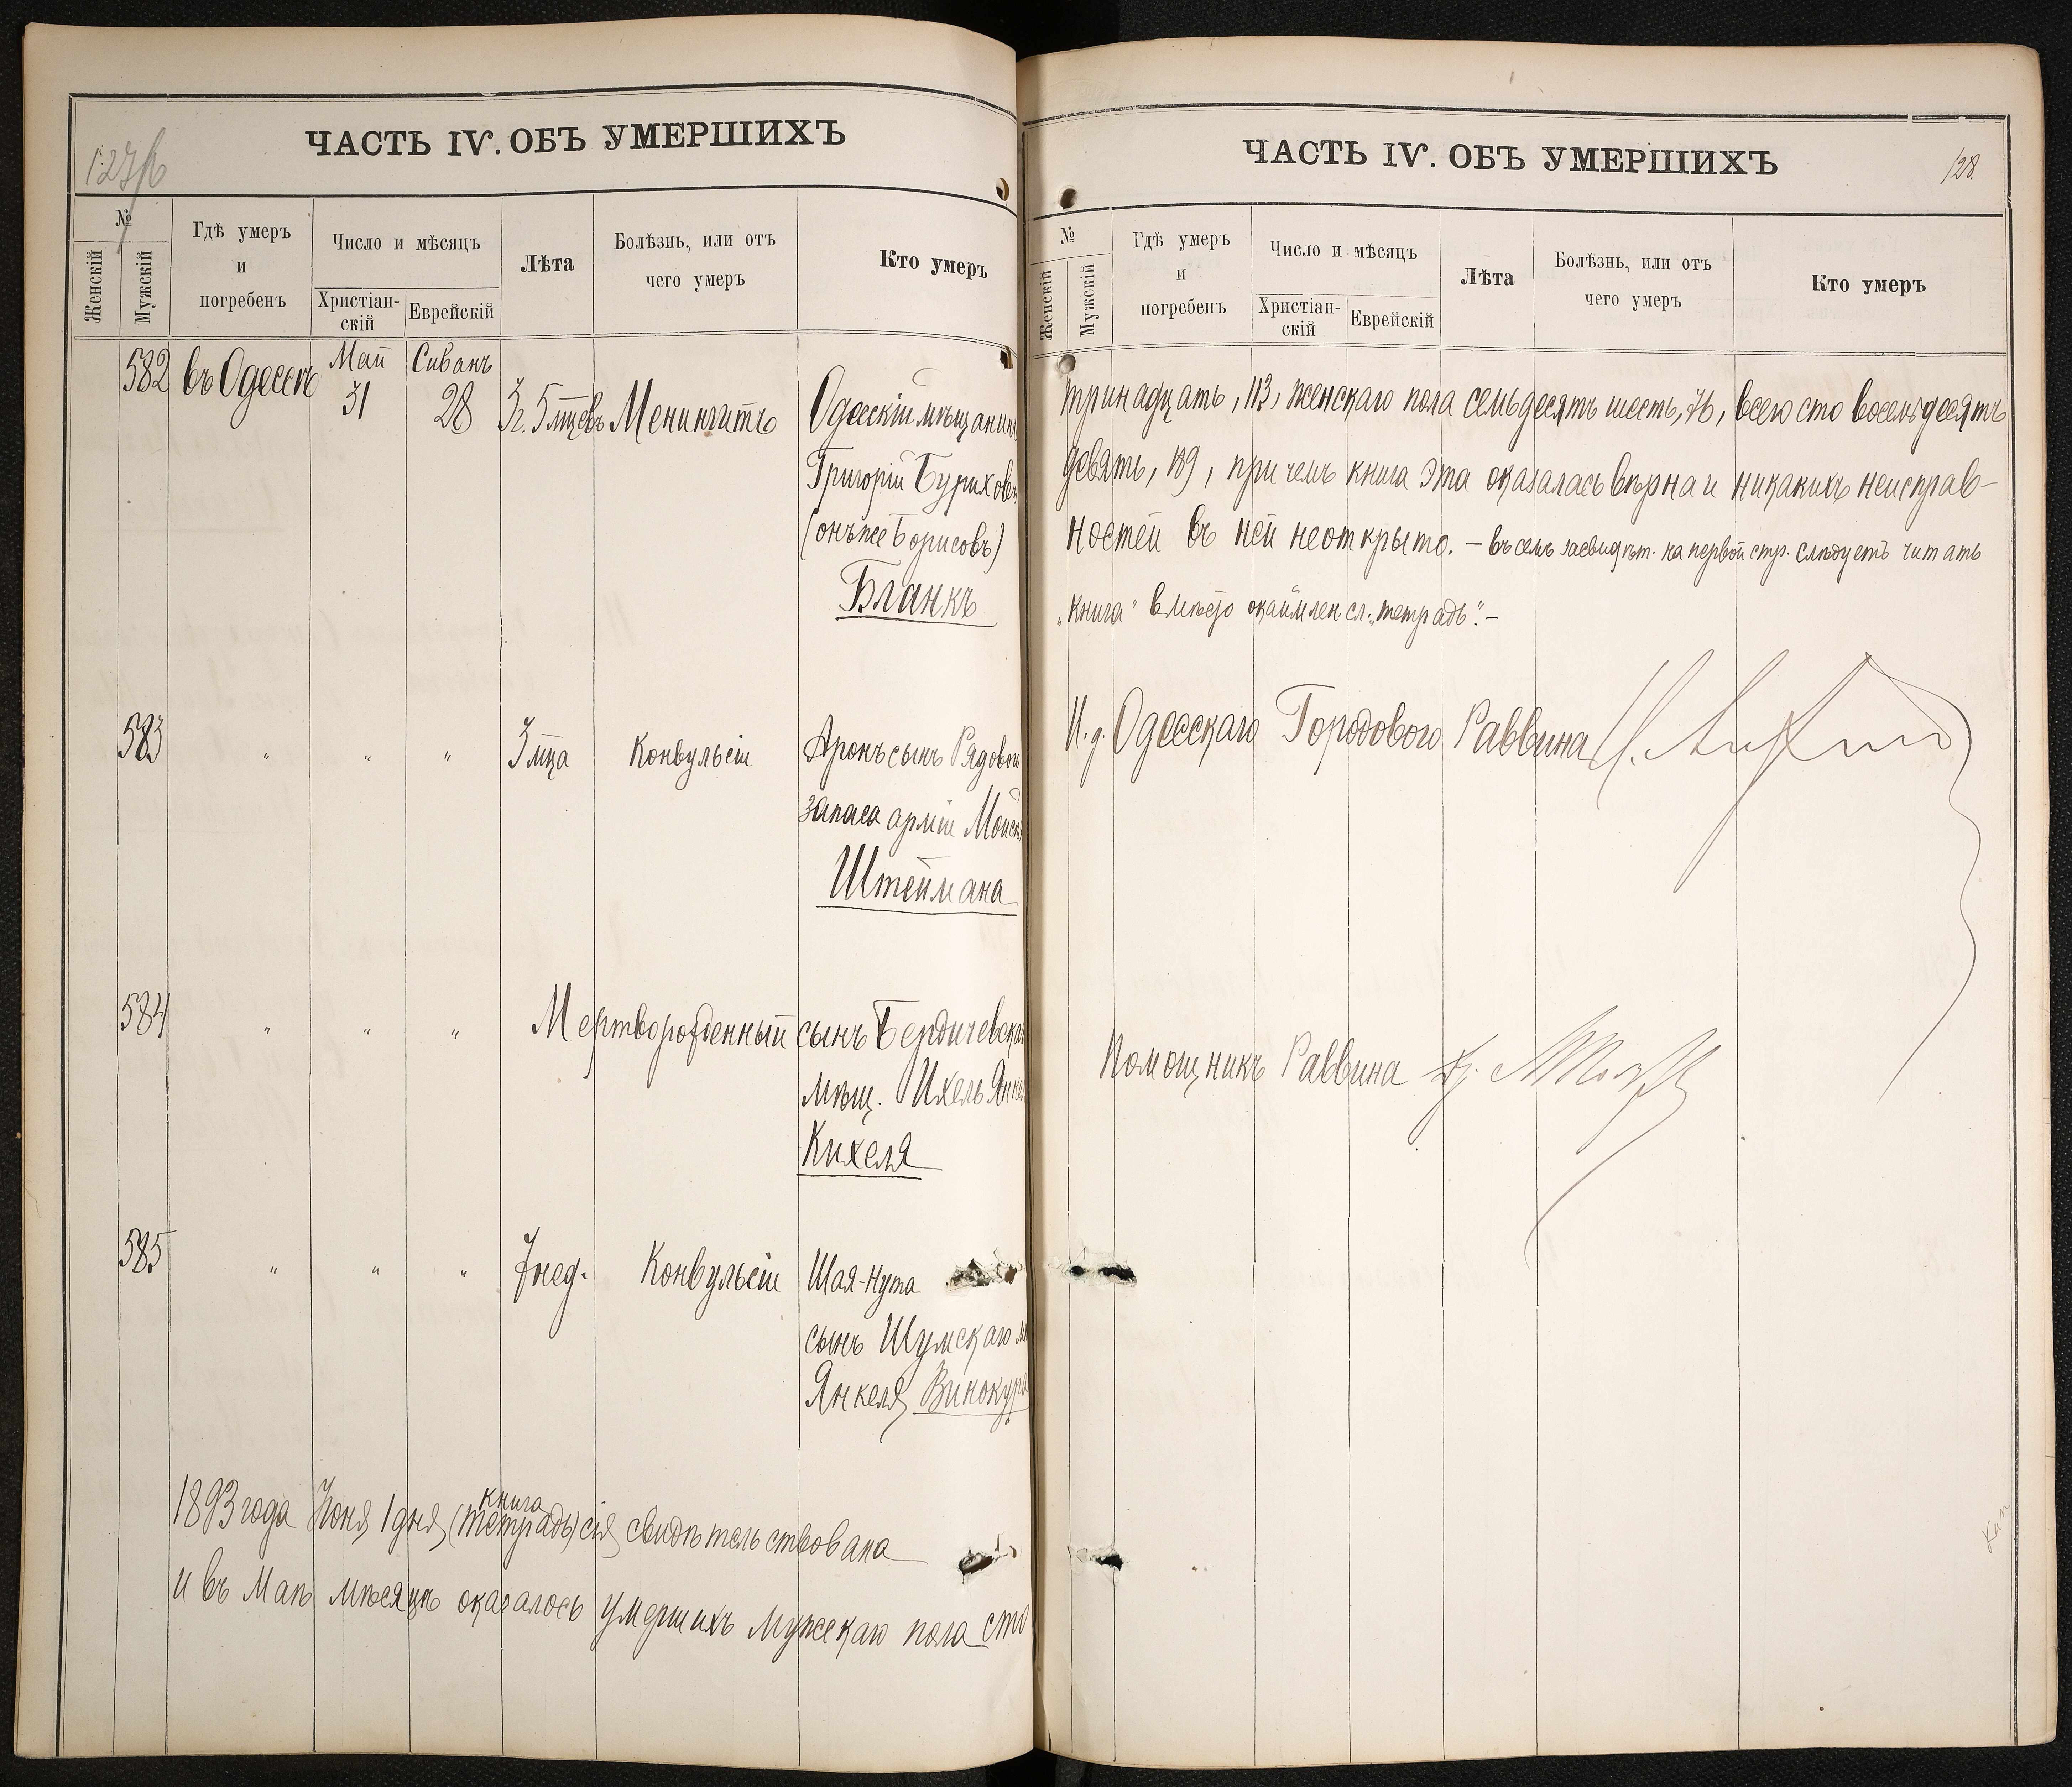 ЧАСТЬ IV. ОБЪ УМЕРШИХЪ
127/б
№
Женскій
Мужскій
Гдѣ умеръ
и
погребенъ
Число и мѣсяцъ
Христіан-
скій
Еврейскій
Лѣта
Болѣзнь, или отъ
чего умеръ
Кто умеръ
582 въ Одессѣ Май 31 Сиванъ 28 3 г. 5 мцевъ Менингитъ Одесскій мѣщанинъ
Григорій Буриховъ
(онъ же Борисовъ)
Бланкъ
583 " " " 3 мца Конвульсіи Аронъ сынъ Рядового
запаса арміи
Штеймана
584 " " " Мертворожденный сынъ Бердичевска
мѣщ. Ихеля Янкел
Кихеля
585 " " " 7 нед. Конвульсіи Шая-Нута
сынъ Шумскаго м
Янкеля Винокура
1893 года Іюня 1 дня (тетрадь) книга сія свидѣтельствована
и въ Маѣ мѣсяцѣ оказалось умершихъ мужскаго пола сто
ЧАСТЬ IV. ОБЪ УМЕРШИХЪ
128.
№
Женскій
Мужскій
Гдѣ умеръ
и
погребенъ
Число и мѣсяцъ
Христіан-
скій
Еврейскій
Лѣта
Болѣзнь, или отъ
чего умеръ
Кто умеръ
тринадцать, 113, женскаго пола семьдесятъ шесть, 76, всего сто восемьдесятъ
девять, 189, при чемъ книга эта оказалась вѣрна и никакихъ неисправ-
ностей въ ней не открыто. – въ семъ засвидѣт. на первой стр. слѣдуетъ читать
„книга" вмѣсто окаймлен. сл. „тетрадь". –
И. д. Одесскаго Городового Раввина
Помощникъ Раввина